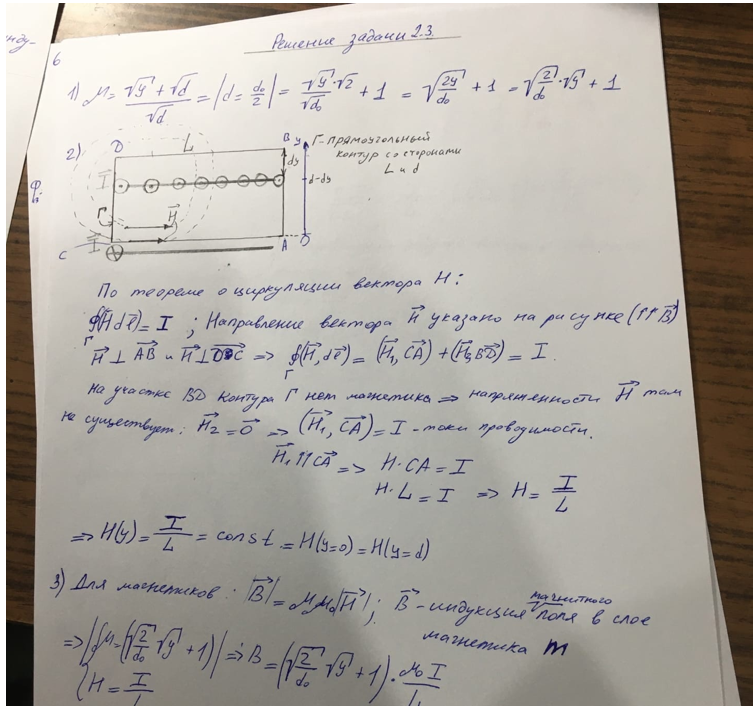 нду-
6
Решение задачи 2.3.
1) μ = (√y + √d)/√d = |d = d₀/2| = (√y · √2)/√d₀ + 1 = √(2y/d₀) + 1 = √(2/d₀) · √y + 1
2) D L B y Г - прямоугольный
контур со сторонами
L и d
dy
I d-dy
Г H
C I A O
По теореме о циркуляции вектора H:
∮(H⃗ dℓ⃗) = I ; Направление вектора H⃗ указано на рисунке (↑↑B⃗)
Г
H⃗ ⊥ AB⃗ и H⃗ ⊥ DC⃗ => ∮(H⃗, dℓ⃗) = (H⃗₁, CA⃗) + (H⃗₂ BD⃗) = I.
Г
На участке BD контура Г нет магнетика => напряженности H⃗ там
не существует: H⃗₂ = 0⃗ => (H⃗₁, CA⃗) = I - токи проводимости.
H⃗₁ ↑↑ CA⃗ => H · CA = I
H · L = I => H = I/L
=> H(y) = I/L = const. = H(y=0) = H(y=d)
3) Для магнетиков: |B⃗| = μμ₀|H⃗|; B⃗ - индукция магнитного поля в слое
магнетика m
=> { μ = (√(2/d₀) √y + 1) | => B = (√(2/d₀) √y + 1) · μ₀ I/L
H = I/L